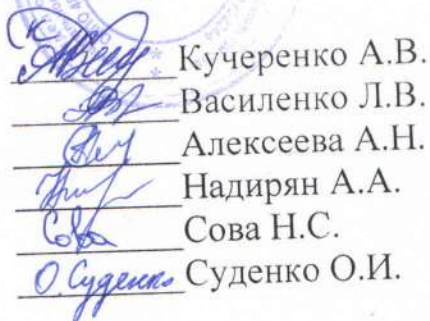 Кучеренко А.В.
Василенко Л.В.
Алексеева А.Н.
Надирян А.А.
Сова Сова Н.С.
О.Суденко Суденко О.И.